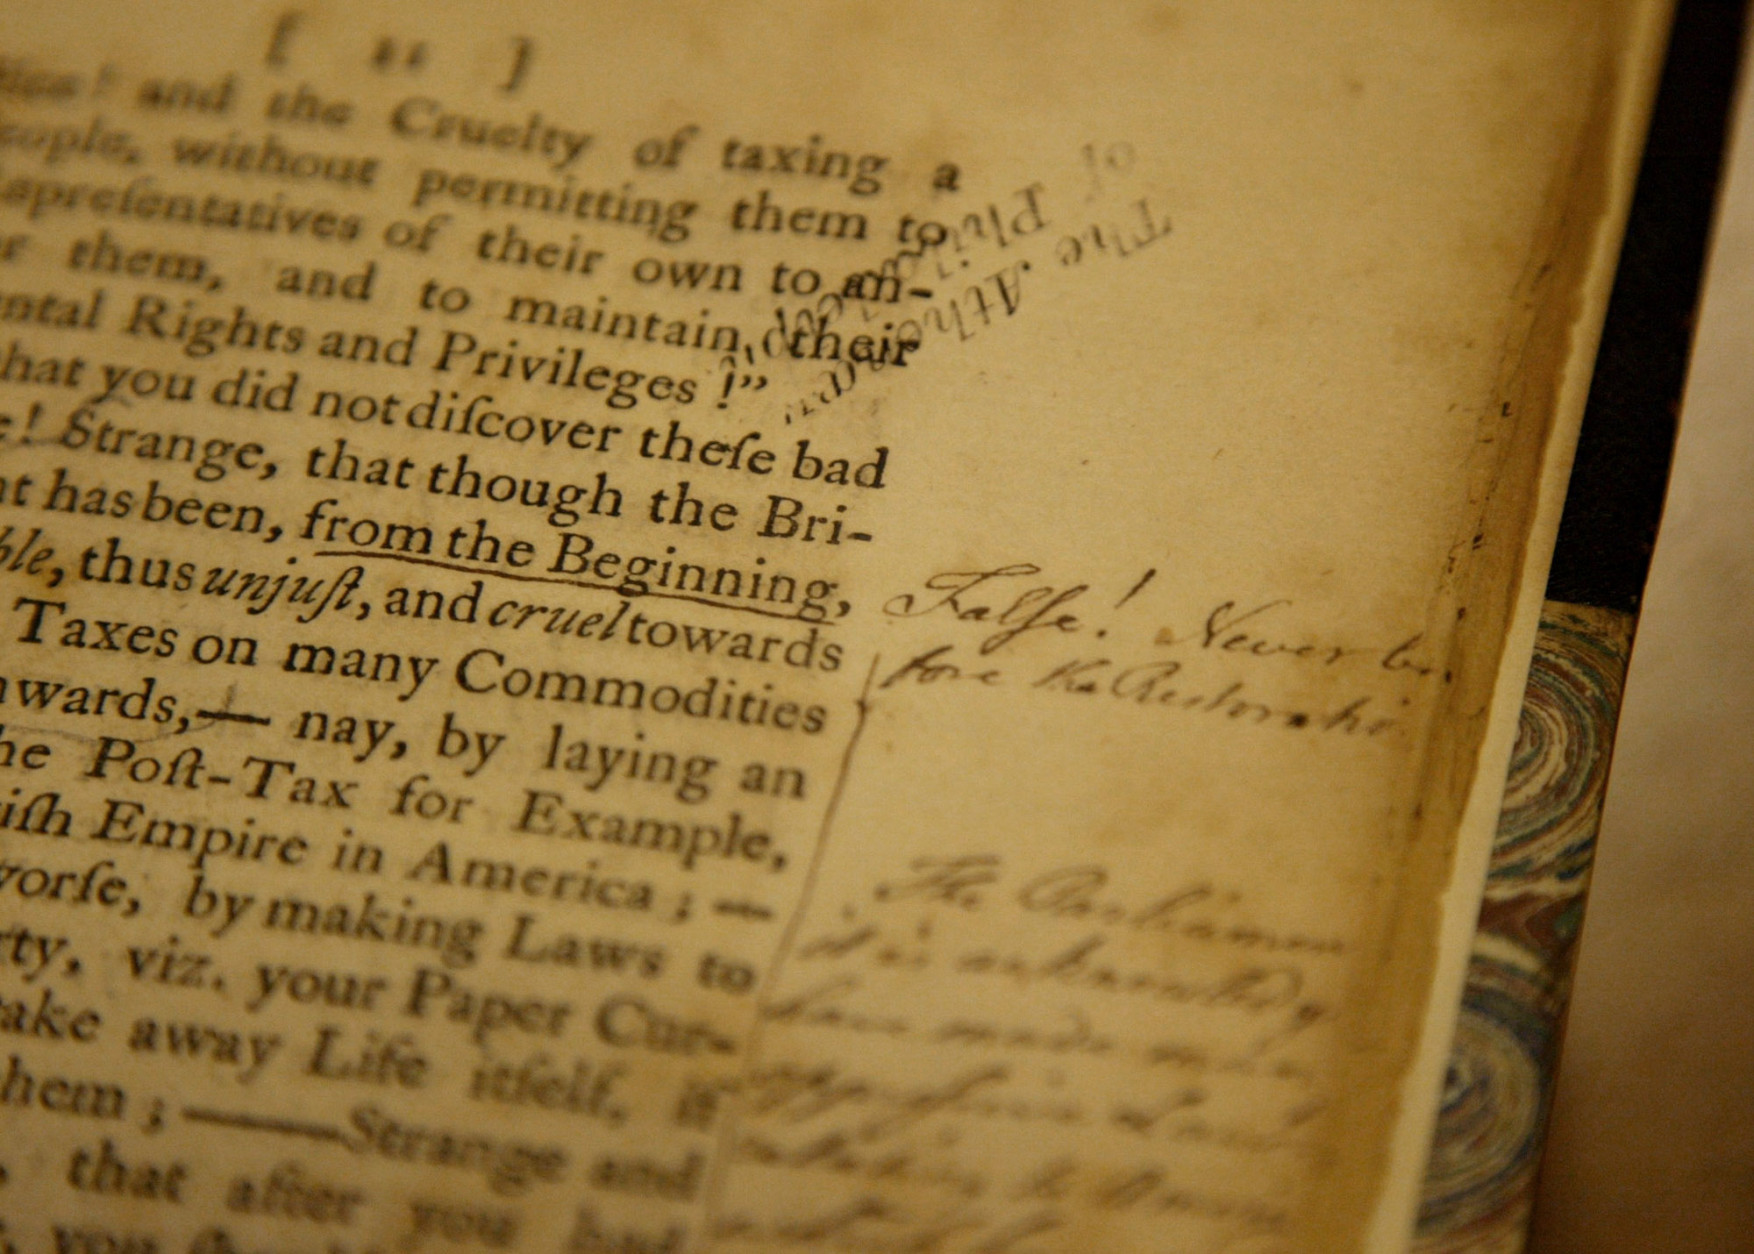 and the Cruelty of taxing a
without permitting them to
epreſentatives of their own to an-
r them, and to maintain their
ntal Rights and Privileges !”
hat you did not diſcover theſe bad
e! Strange, that though the Bri-
nt has been, from the Beginning,
ble, thus unjuſt, and cruel towards
Taxes on many Commodities
nwards,— nay, by laying an
he Poſt-Tax for Example,
iſh Empire in America ; —
worſe, by making Laws to
rty, viz. your Paper Cur-
take away Life itſelf, if
hem ;——Strange and
that after you had
The Athenæum
of Philadelphia
Falſe! Never be
fore the Restoratio
The Parliamen
it is acknowledg
have made